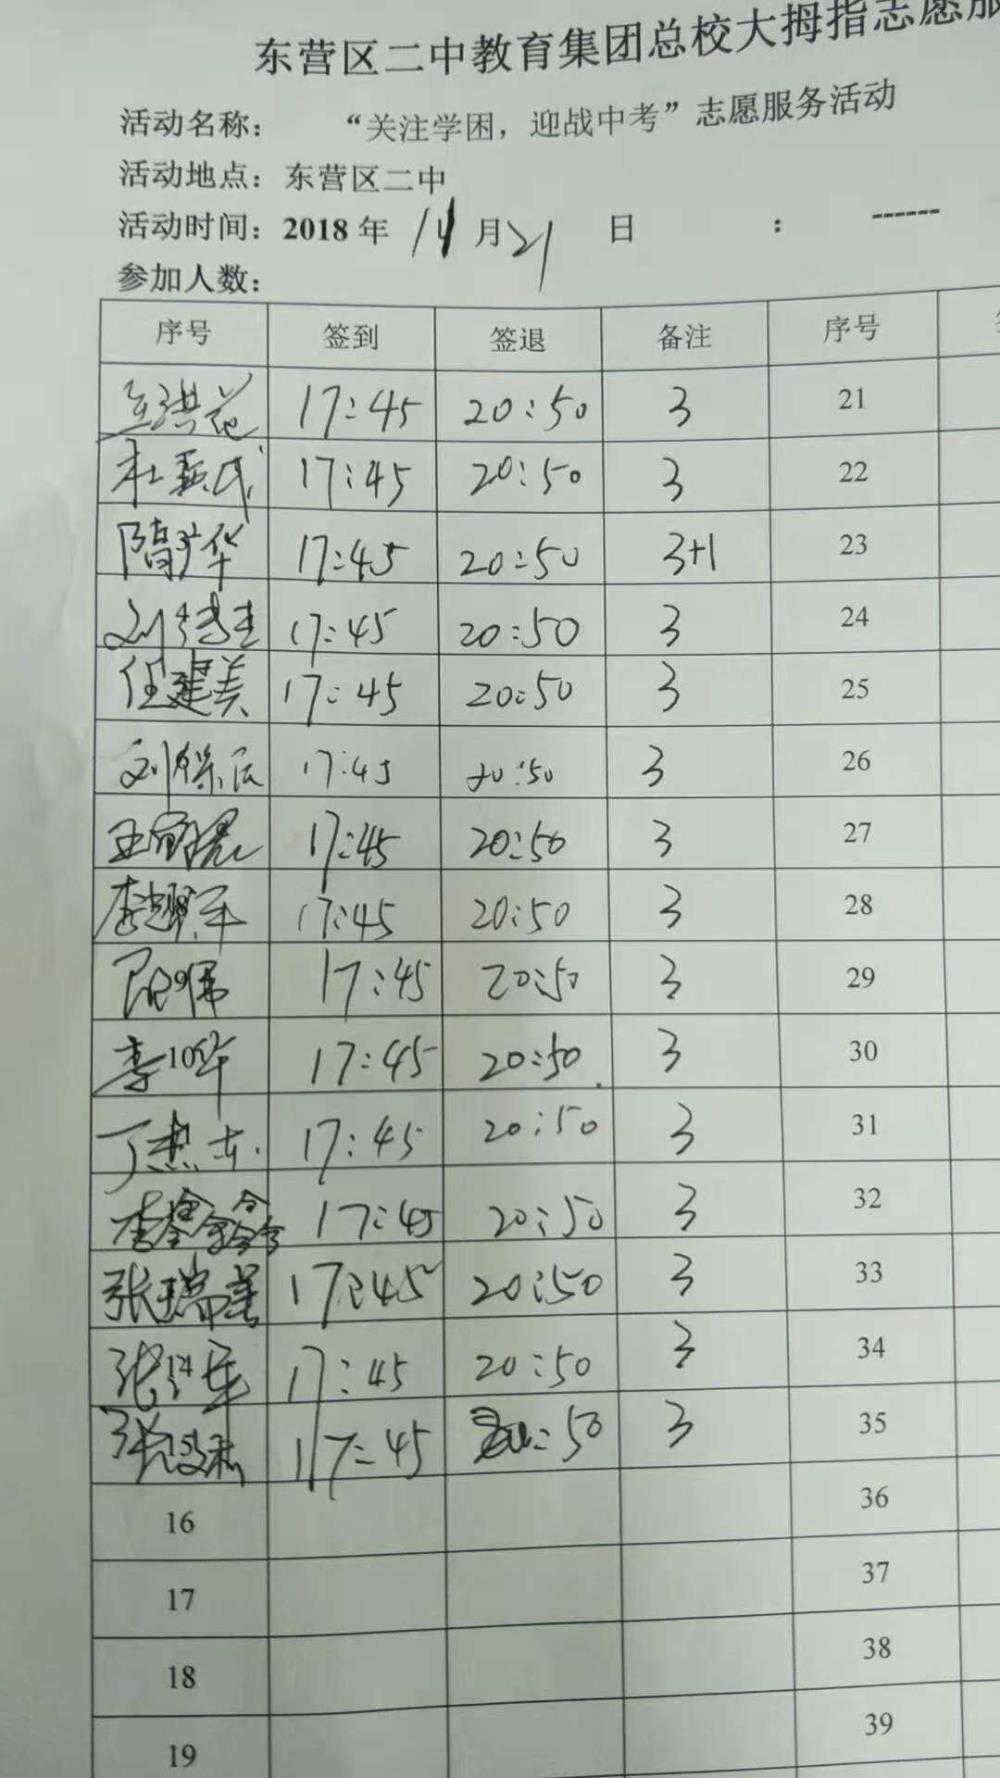 东营区二中教育集团总校大拇指志愿服
活动名称： “关注学困，迎战中考”志愿服务活动
活动地点：东营区二中
活动时间：2018 年 11 月 21 日 : ------
参加人数：
序号 签到 签退 备注 序号
17:45 20:50 3 21
17:45 20:50 3 22
隋 华 17:45 20:50 3+1 23
刘 17:45 20:50 3 24
任建美 17:45 20:50 3 25
刘保 17:45 20:50 3 26
王 17:45 20:50 3 27
李 军 17:45 20:50 3 28
17:45 20:50 3 29
李 10 华 17:45 20:50 3 30
丁杰 17:45 20:50 3 31
李 17:45 20:50 3 32
张瑞 17:45 20:50 3 33
张 14 17:45 20:50 3 34
张 15 17:45 20:50 3 35
16 36
17 37
18 38
19 39